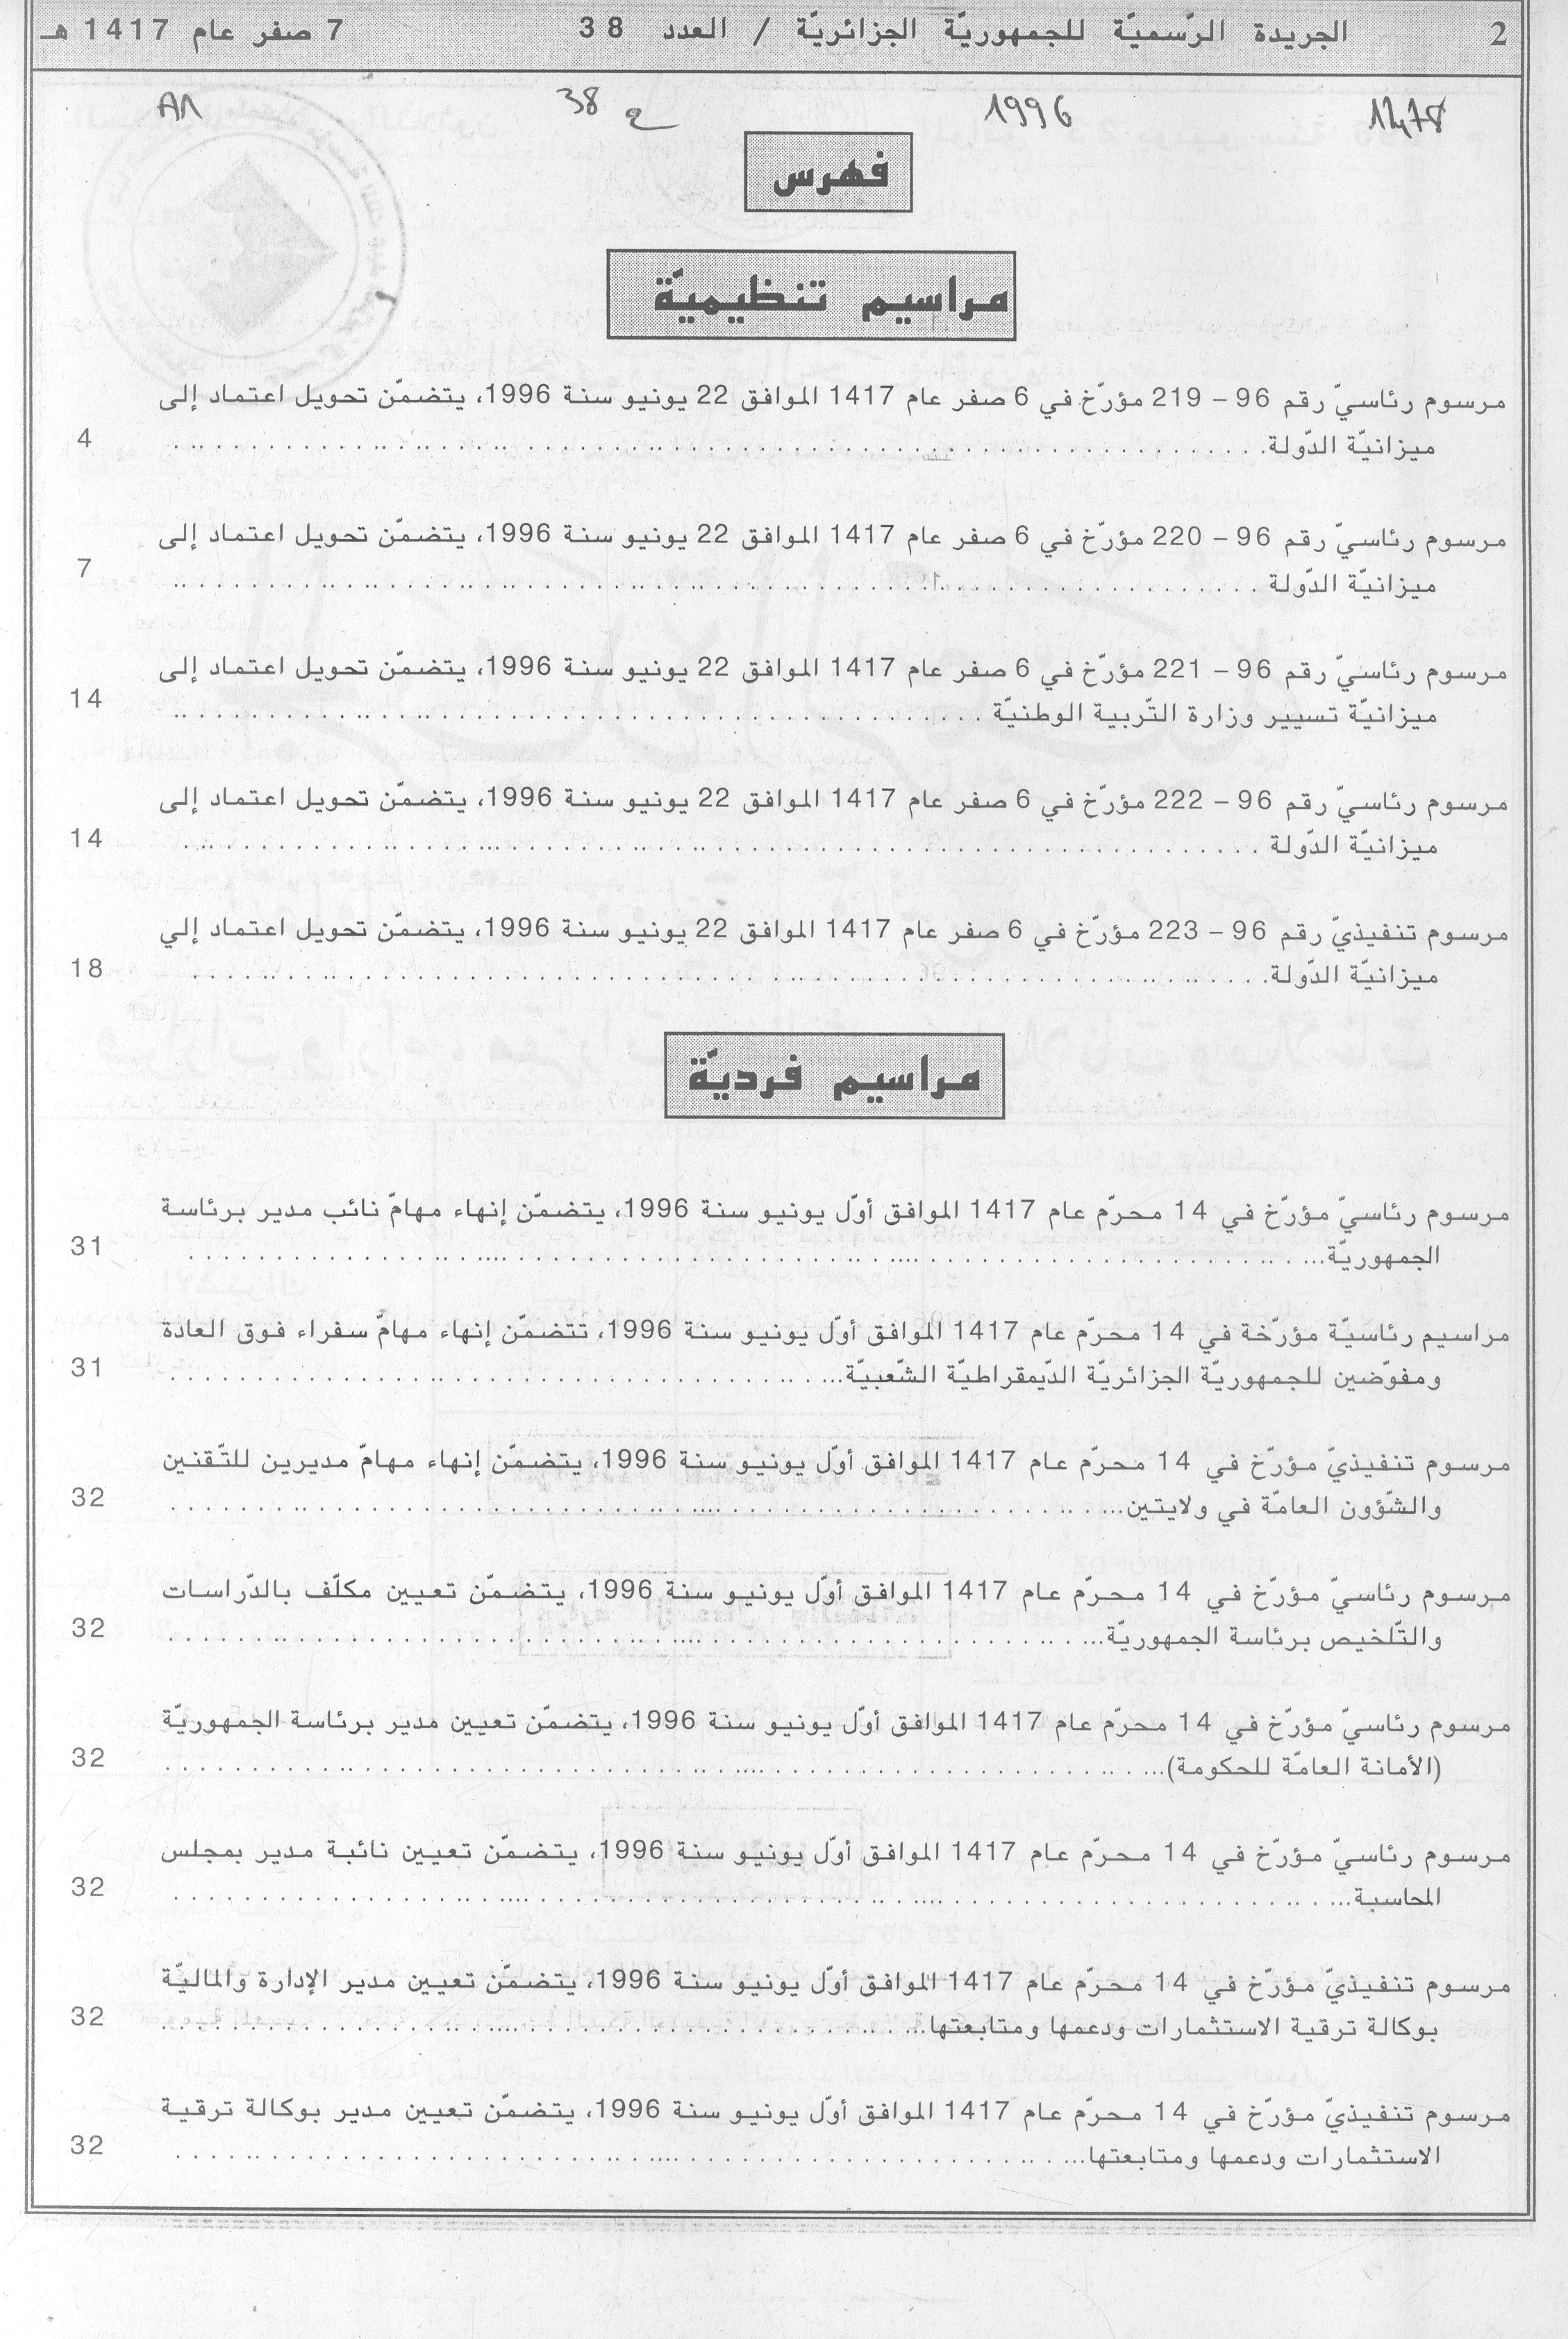 2 الجريدة الرّسميّة للجمهوريّة الجزائريّة / العدد 38 7 صفر عام 1417 هـ
1996 38 ع A1
فهرس
مراسيم تنظيميّة
مرسوم رئاسيّ رقم 96 – 219 مؤرّخ في 6 صفر عام 1417 الموافق 22 يونيو سنة 1996، يتضمّن تحويل اعتماد إلى
ميزانيّة الدّولة. 4
مرسوم رئاسيّ رقم 96 – 220 مؤرّخ في 6 صفر عام 1417 الموافق 22 يونيو سنة 1996، يتضمّن تحويل اعتماد إلى
ميزانيّة الدّولة 7
مرسوم رئاسيّ رقم 96 – 221 مؤرّخ في 6 صفر عام 1417 الموافق 22 يونيو سنة 1996، يتضمّن تحويل اعتماد إلى
ميزانيّة تسيير وزارة التّربية الوطنيّة 14
مرسوم رئاسيّ رقم 96 – 222 مؤرّخ في 6 صفر عام 1417 الموافق 22 يونيو سنة 1996، يتضمّن تحويل اعتماد إلى
ميزانيّة الدّولة 14
مرسوم تنفيذيّ رقم 96 – 223 مؤرّخ في 6 صفر عام 1417 الموافق 22 يونيو سنة 1996، يتضمّن تحويل اعتماد إلي
ميزانيّة الدّولة. 18
مراسيم فرديّة
مرسوم رئاسيّ مؤرّخ في 14 محرّم عام 1417 الموافق أوّل يونيو سنة 1996، يتضمّن إنهاء مهامّ نائب مدير برئاسة
الجمهوريّة... 31
مراسيم رئاسيّة مؤرّخة في 14 محرّم عام 1417 الموافق أوّل يونيو سنة 1996، تتضمّن إنهاء مهامّ سفراء فوق العادة
ومفوّضين للجمهوريّة الجزائريّة الدّيمقراطيّة الشّعبيّة... 31
مرسوم تنفيذيّ مؤرّخ في 14 محرّم عام 1417 الموافق أوّل يونيو سنة 1996، يتضمّن إنهاء مهامّ مديرين للتّقنين
والشّؤون العامّة في ولايتين... 32
مرسوم رئاسيّ مؤرّخ في 14 محرّم عام 1417 الموافق أوّل يونيو سنة 1996، يتضمّن تعيين مكلّف بالدّراسات
والتّلخيص برئاسة الجمهوريّة... 32
مرسوم رئاسيّ مؤرّخ في 14 محرّم عام 1417 الموافق أوّل يونيو سنة 1996، يتضمّن تعيين مدير برئاسة الجمهوريّة
(الأمانة العامّة للحكومة)... 32
مرسوم رئاسيّ مؤرّخ في 14 محرّم عام 1417 الموافق أوّل يونيو سنة 1996، يتضمّن تعيين نائبة مدير بمجلس
المحاسبة... 32
مرسوم تنفيذيّ مؤرّخ في 14 محرّم عام 1417 الموافق أوّل يونيو سنة 1996، يتضمّن تعيين مدير الإدارة والماليّة
بوكالة ترقية الاستثمارات ودعمها ومتابعتها... 32
مرسوم تنفيذيّ مؤرّخ في 14 محرّم عام 1417 الموافق أوّل يونيو سنة 1996، يتضمّن تعيين مدير بوكالة ترقية
الاستثمارات ودعمها ومتابعتها... 32